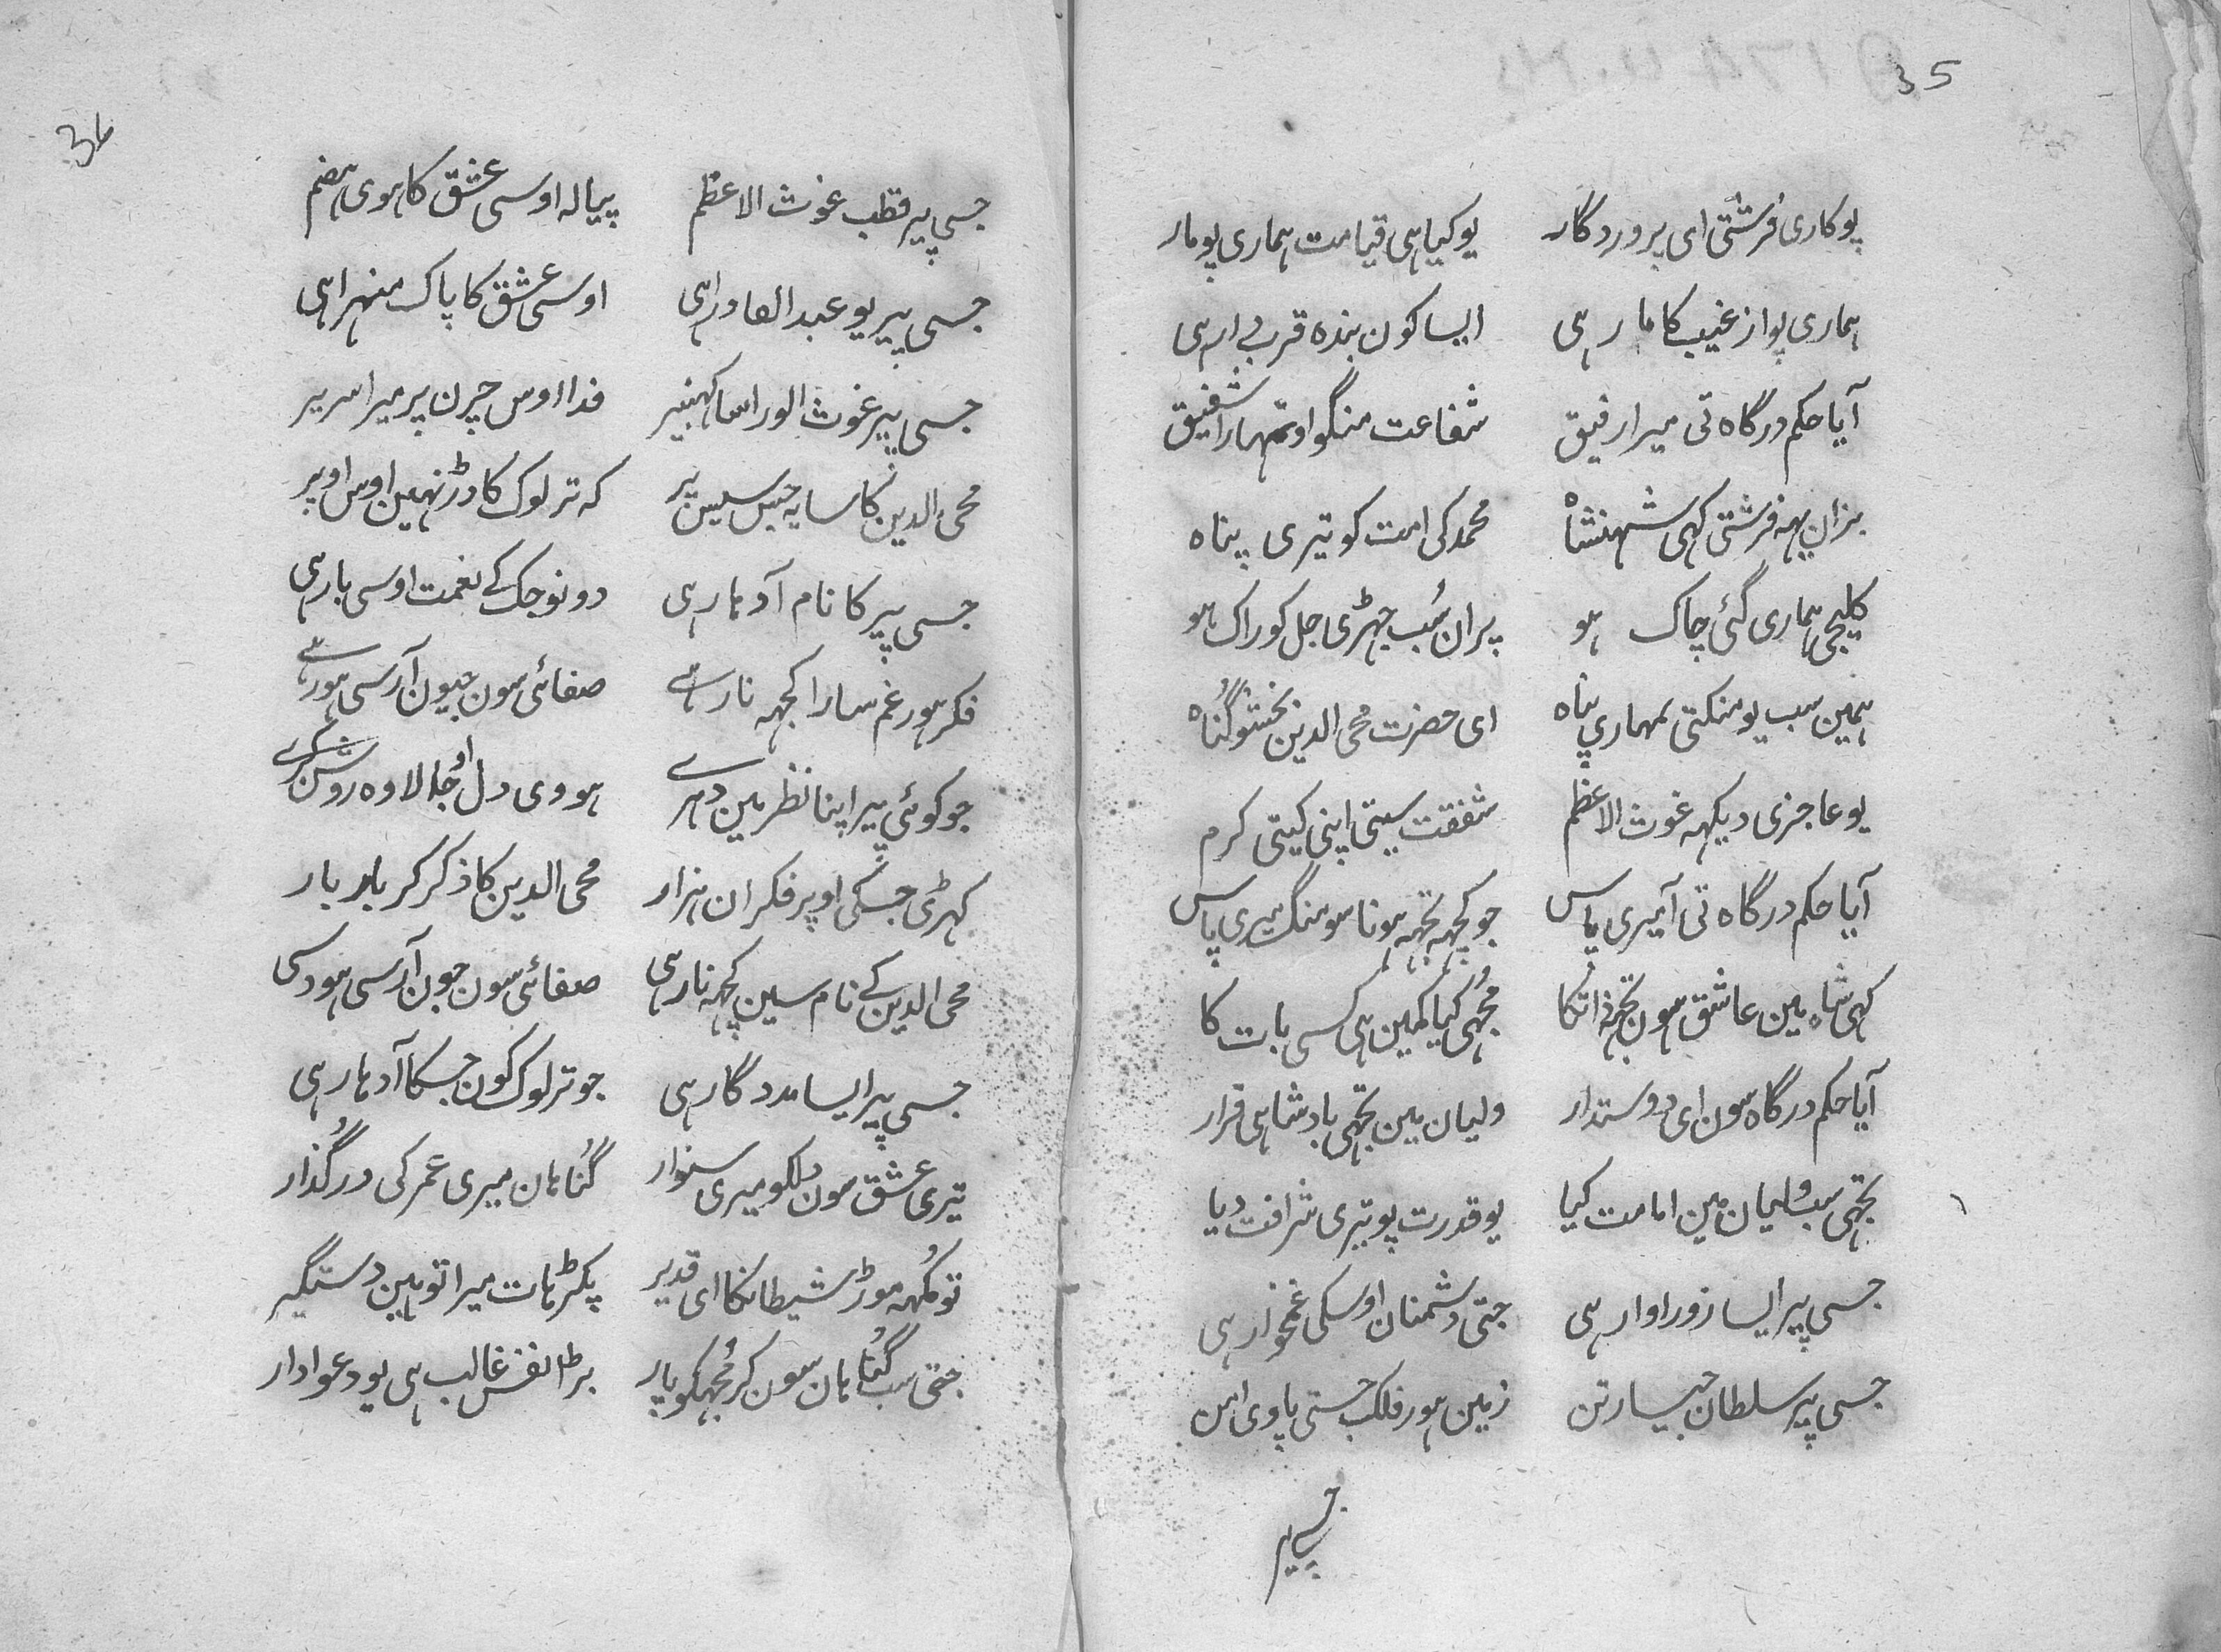 35
پوکاری فرشتی ای پروردگار یو کیا ہی قیامت ہماری پو مار
ہماری پو از غیب کا مار ہی ایسا کون بندہ قرب دار ہی
آیا حکم درگاہ تی میرا رفیق شفاعت منگو او تمہارا شفیق
بزان یہہ فرشتی کہی شہنشاہ محمد کی امت کو تیری پناہ
کلیجی ہماری گئی چاک ہو پران سُب جہڑی جل کو راک ہو
ہمین سب یو منکتی تمہاری پناہ ای حضرت محی الدین بخشو گُناہ
یو عاجزی دیکہہ غوث الاعظم شفقت سیتی اپنی کیتی کرم
آیا حکم درگاہ تی آ میری پاس جو کچہہ تجہہ ہونا سو منگ میری پاس
کہی شاہ مین عاشق ہون تجہہ ذاتکا مُجہی کیا کمین ہی کسی بات کا
آیا حکم درگاہ سون ای دوستدار ولیان مین تجہی بادشاہی قرار
تجہی سب ولیان مین امامت کیا یو قدرت پو تیری شرافت دیا
جسی پیر ایسا زوراوار ہی جتی دشمنان اوسکی غمخوار ہی
جسی پیر سلطان جیسا رتن زمین ہور فلک جستی پاوی امن
جسی پیر
36
جسی پیر قطب غوث الاعظم پیالہ اوسی عشق کا ہوی ہضم
جسی پیر یو عبدالقادر اہی اوسی عشق کا پاک منہرا ہی
جسی پیر غوث الورا سا کہنیر فدا اوس چرن پر میرا سریر
محی الدین کا سایہ جس سیس پر کہ ترلوک کا ڈر نہین اوس اوپر
جسی پیر کا نام آدہار ہی دونو جک کے نعمت اوسی بار ہی
فکر ہور غم سارا کجہہ نا رہے صفائی سون جیون آرسی ہو رہے
جو کوئی پیر اپنا نظر مین دہرے ہووی دل اوجالا وہ روشن کرے
کہڑی جسکی اوپر فکران ہزار محی الدین کا ذکر کر بار بار
محی الدین کے نام سین کچہہ نا رہی صفائی سون جون آرسی ہو دسی
جسی پیر ایسا مددگار ہی جو ترلوک کون جسکا آدہار ہی
تیری عشق سون دلکو میری سنوار گُناہان میری عمر کی درگُذار
تو مُہہ موڑ شیطانکا ای قدیر پکڑ ہات میرا تو ہین دستگیر
جتی سب گُناہان سون کر مُجہکو پار بڑا نفس غالب ہی یو دعوادار